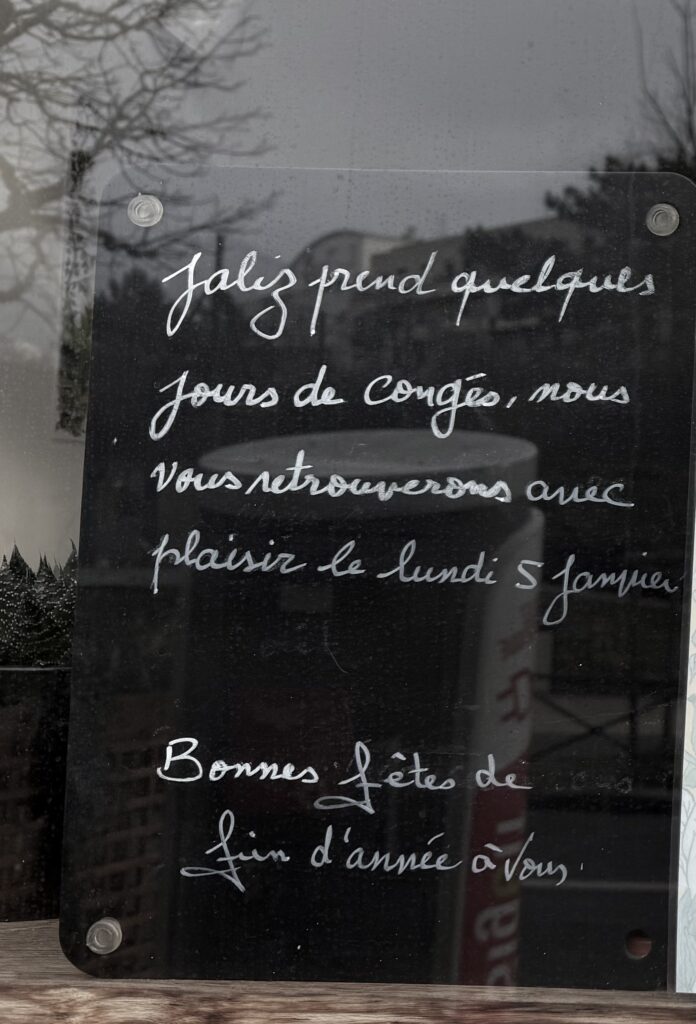 Jaliz prend quelques
jours de congés, nous
vous retrouverons avec
plaisir le lundi 5 janvier
Bonnes fêtes de
fin d'année à vous.